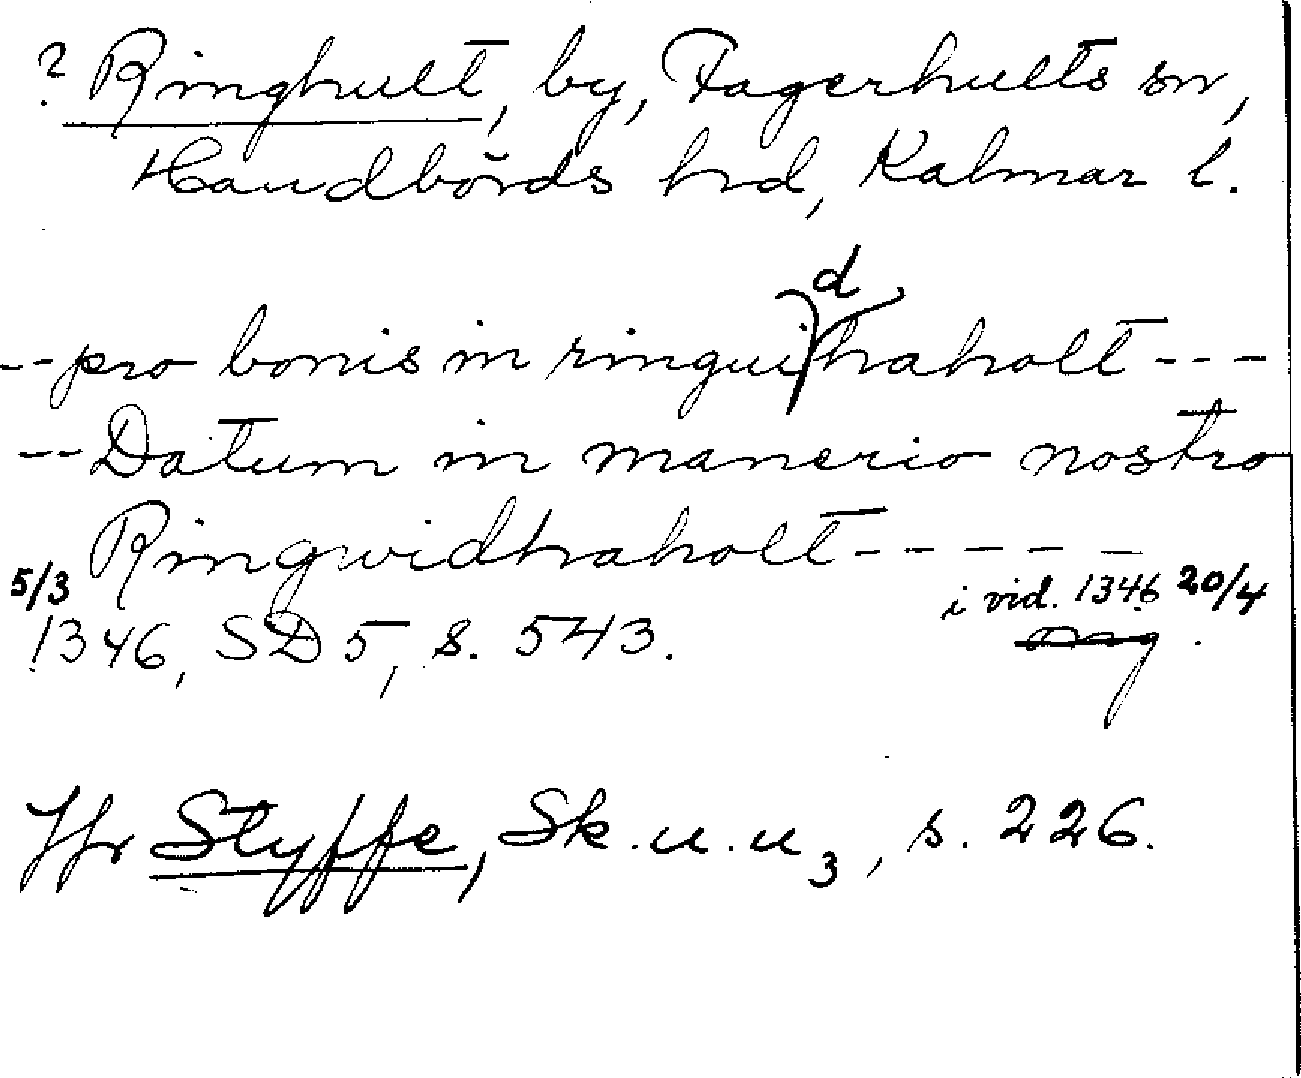 ? Ringhult, by, Fagerhults sn,
Handbörds hrd, Kalmar l.
--pro bonis in ringuidhaholt---
--Datum in manerio nostro
Ringwidhaholt-----
5/3 1346, SD 5, s. 543. i vid. 1346 20/4
Jfr Styffe, Sk.u.u 3, s. 226.